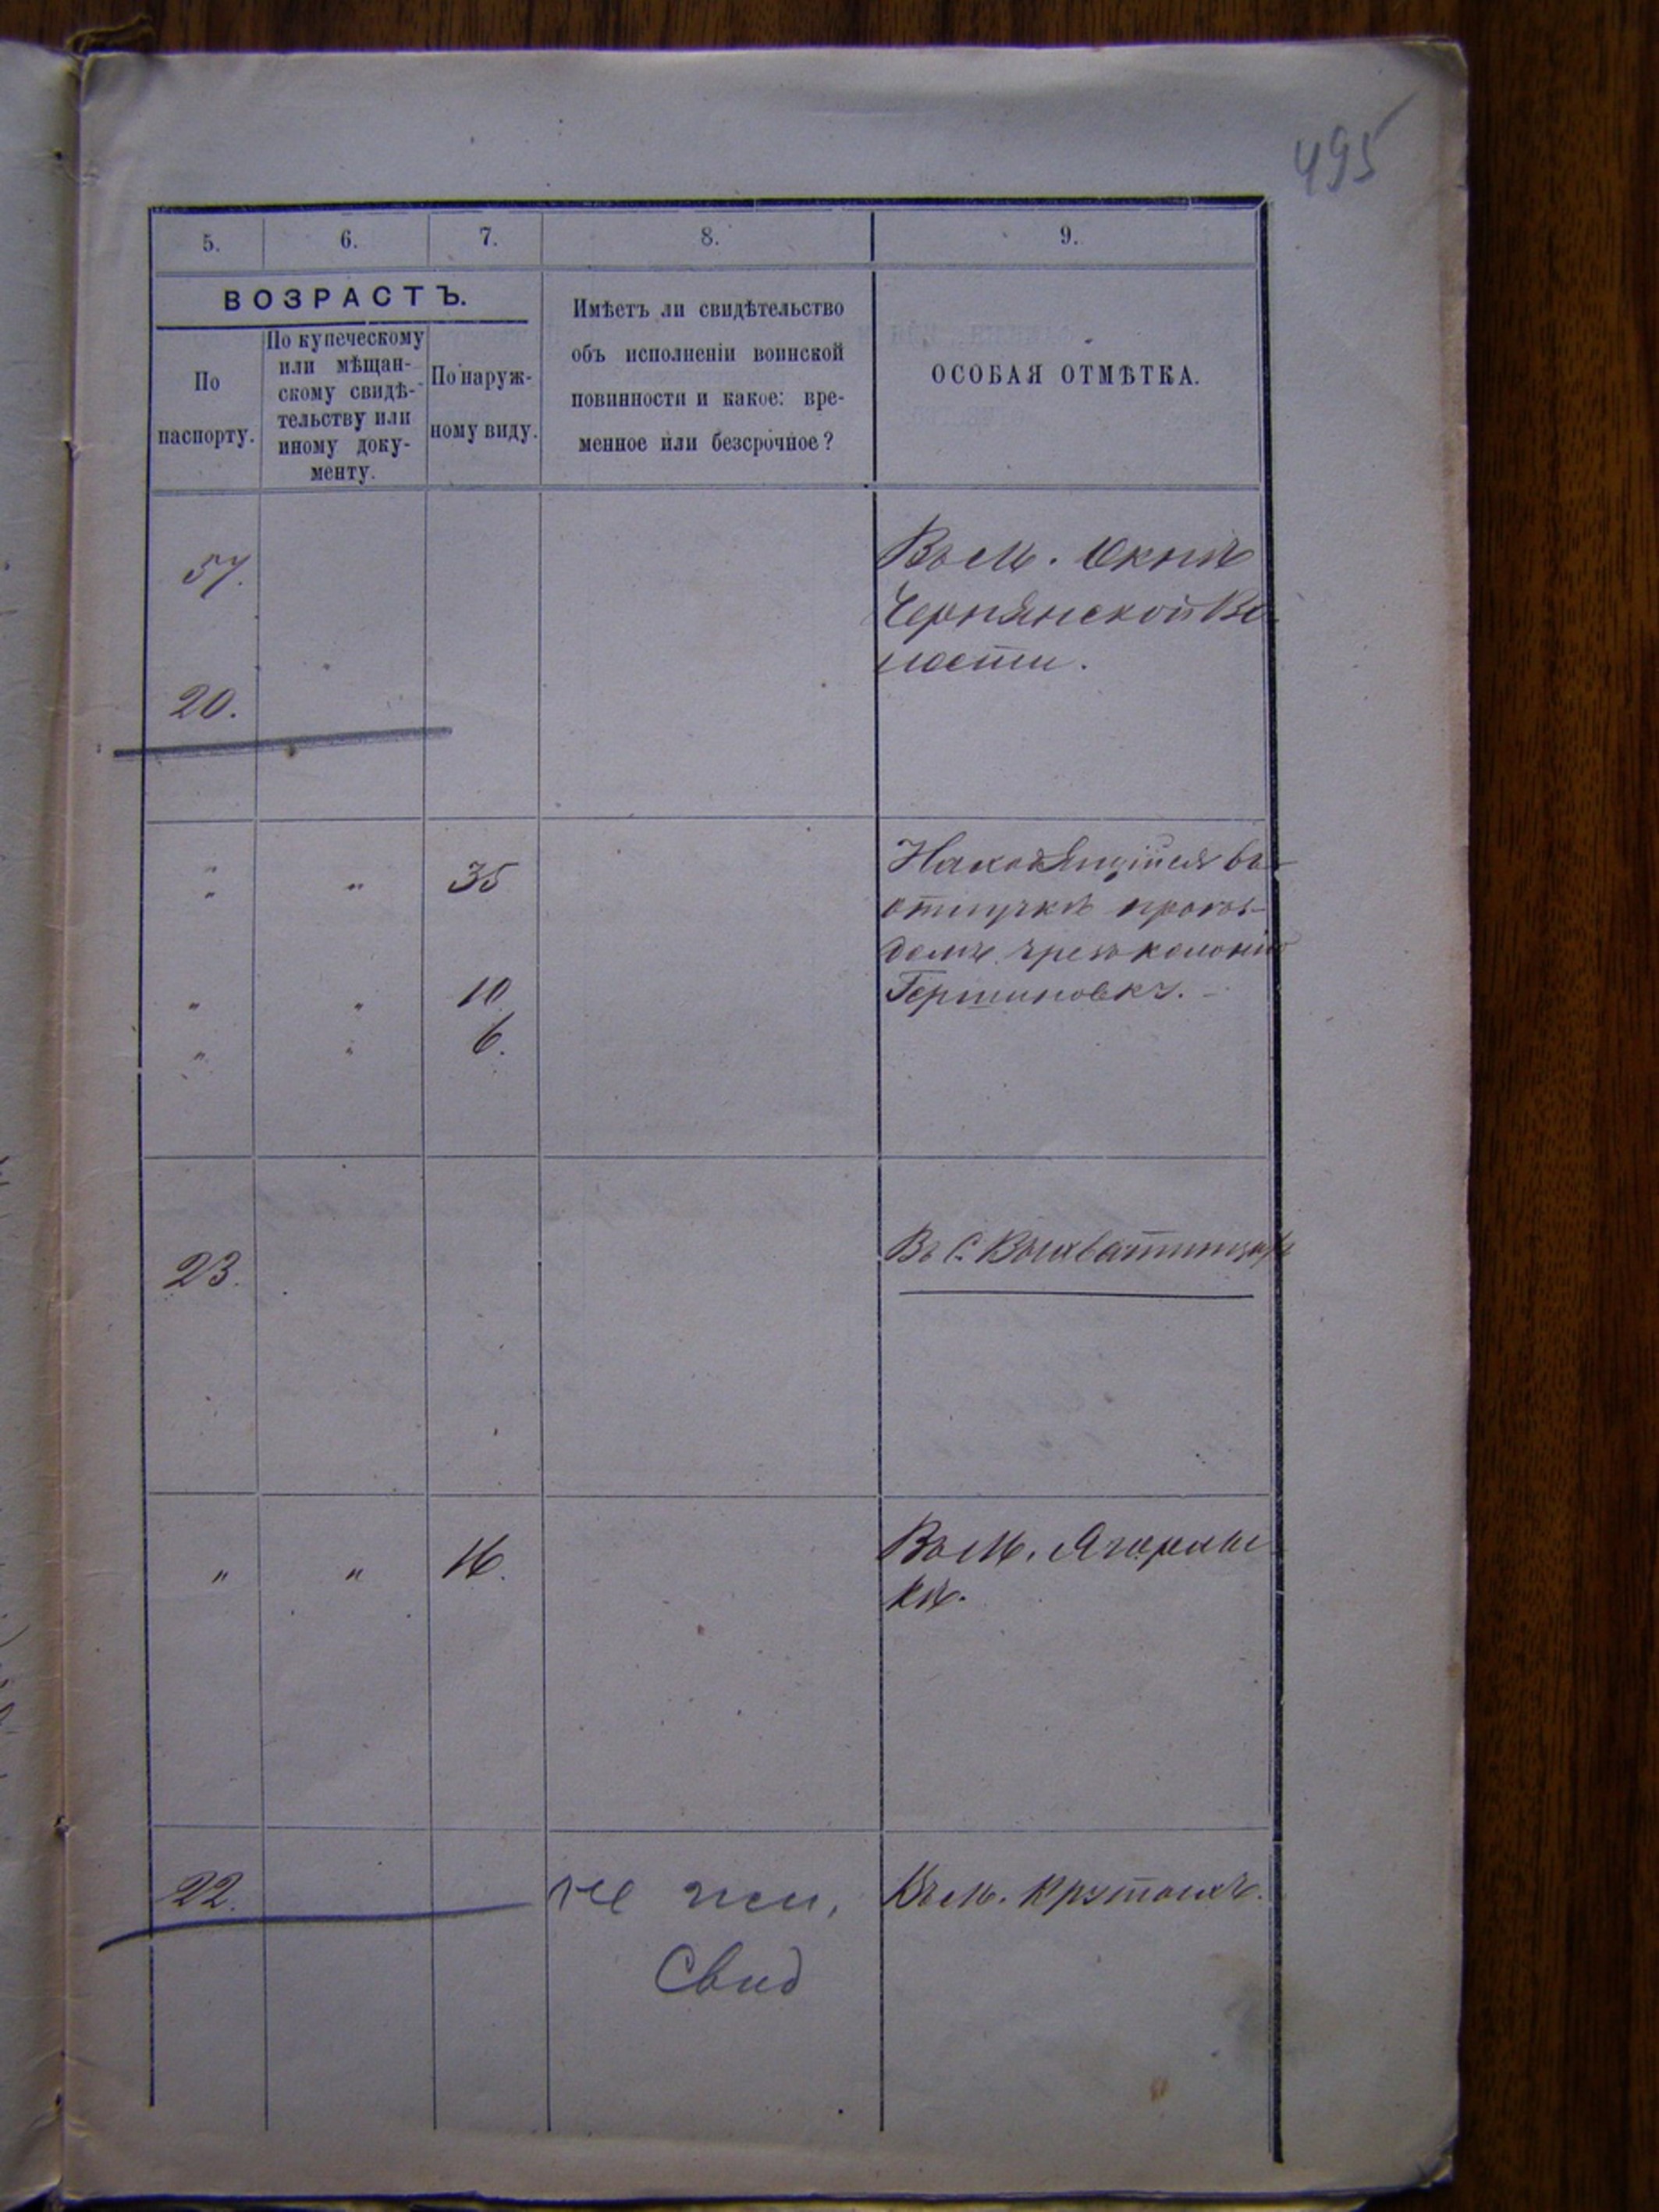 495
5. 6. 7. 8. 9.
ВОЗРАСТЪ.
По
паспорту.
По купеческому
или мѣщан-
скому свидѣ-
тельству или
иному доку-
менту.
По наруж-
ному виду.
Имѣетъ ли свидѣтельство
объ исполненіи воинской
повинности и какое: вре-
менное или безсрочное?
ОСОБАЯ ОТМѢТКА.
57.
Въ м. Окнѣ
Чернянской Во
лости.
20.
" " 35
Находящійся въ
отлучкѣ прохо-
домъ чрезъ колонію
Гершиновку.
" " 10
" " 6.
23.
Въ С. Выхватинцахъ
" " 16.
Въ м. Ягорлы
кѣ.
22.
не им.
Свид
Въ м. Крутыхъ.